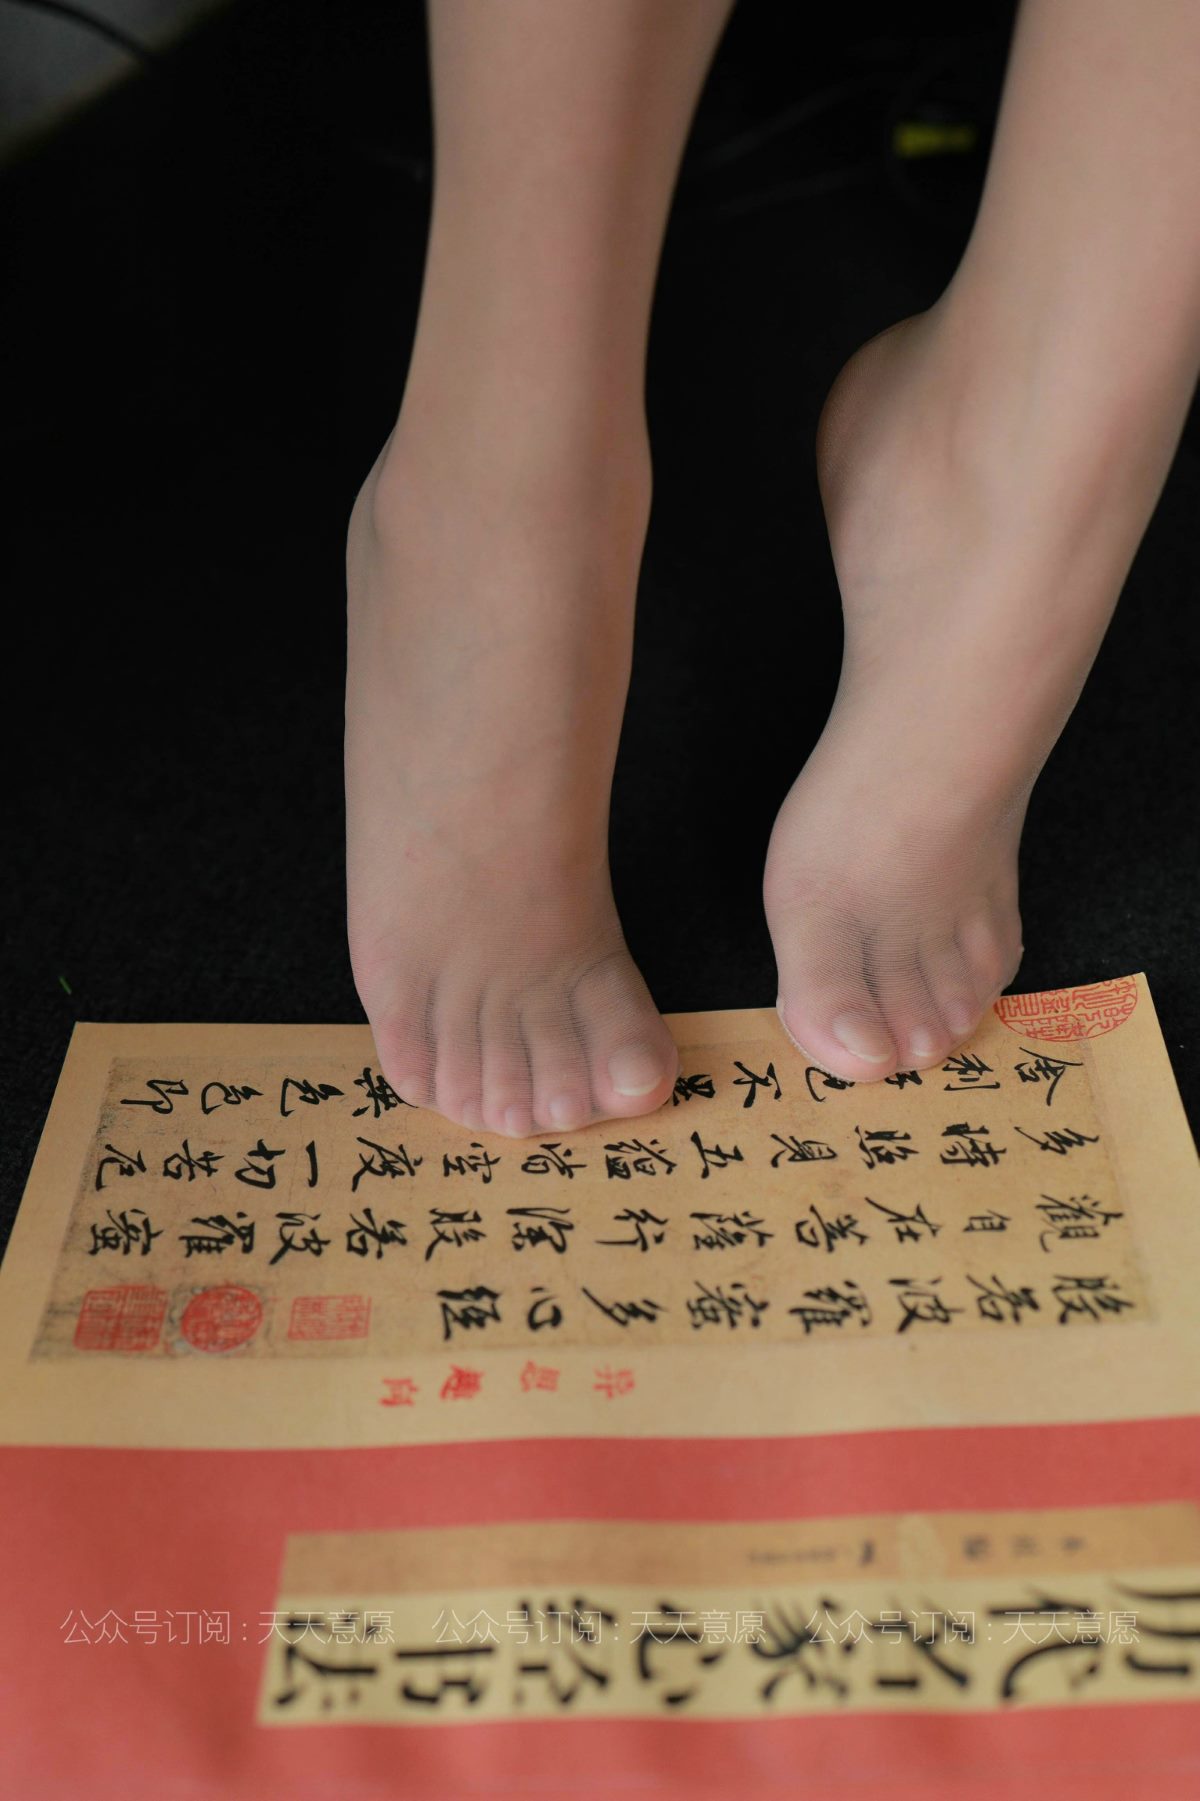 般若波羅蜜多心經
觀自在菩薩行深般若波羅蜜
多時照見五蘊皆空度一切苦厄
舍利子色不異
異色色即
歷代名家心經书法
公众号订阅:天天意愿 公众号订阅:天天意愿 公众号订阅:天天意愿